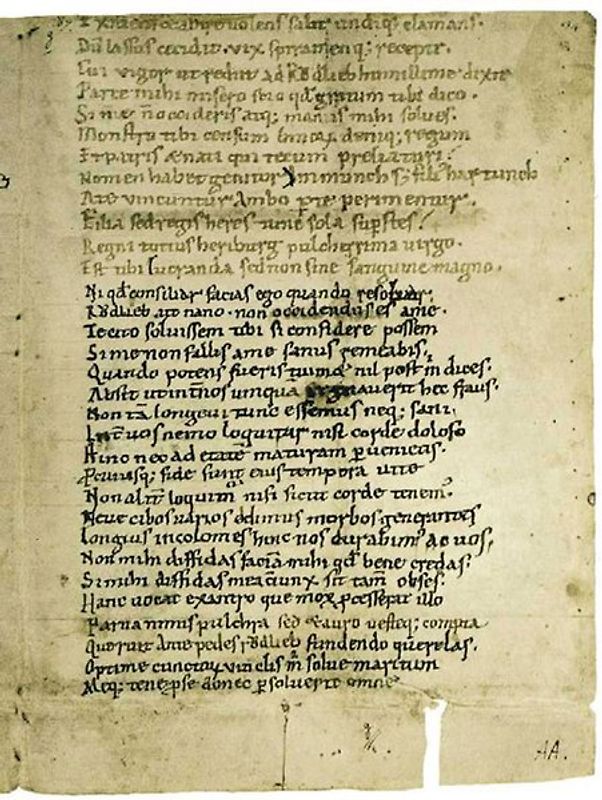 volens salit undiq; clamans.
Dū lassus cecidit. vix spiramenq; recepit.
Cui vigor ut rediit ad R̊Vdlieb humillime dixit
Parce mihi misero scio qđ gratum tibi dico.
Si me n̄ occideris atq; manus mihi solves.
Monstro tibi censum binoꝝ deniq; regum
Et patris & nati qui tecum preliaturi.
Nomen habet genitor Immunch s; fili' hartunch
A te vincuntur Ambo pit̄ perimentur.
Filia sed regis heres tunc sola sup̱stes.
Regni totius heriburg pulcherrima virgo.
Est tibi lucranda sed non sine sanguine magno.
Ni qđ consiliar facias ego quando resoluar.
R̊Vdlieb ait nano. non occidendus es a me.
Te cito soluissem tibi si confidere possem
Si me non fallis a me sanus remeabis,
Quando potens fueris tuimet nil post m̄ dices.
Absit ut inť nos umquā regnauerit hec fraus.
Non tā longeui tunc essemus neq; sani.
Inť uos nemo loquitur nisi corde doloso
Hinc nec ad etatē maturam ꝑuenietis.
Ꝑ cuiusq; fide sunt eius tempora uite
Non aliť loquimur nisi sicut corde tenem'.
Neue cibos uarios edimus morbos generantes
Longius incolomes hinc nos durabim' ac uos.
Non mihi diffidas faciā mihi qđ bene credas.
Si mihi diffidas mea ciunx sit tam̄ obses.
Hanc uocat ex antro que mox ꝓcesserat illo
Parua nimis pulchra sed & auro uesteq; compta
Que ruit Ante pedes rVdlieb fundendo querelas.
Optime cunctoꝝ vinclis m̄ solue maritum
Meq; tene ꝑ se donec ꝑsoluerit omne
AA.